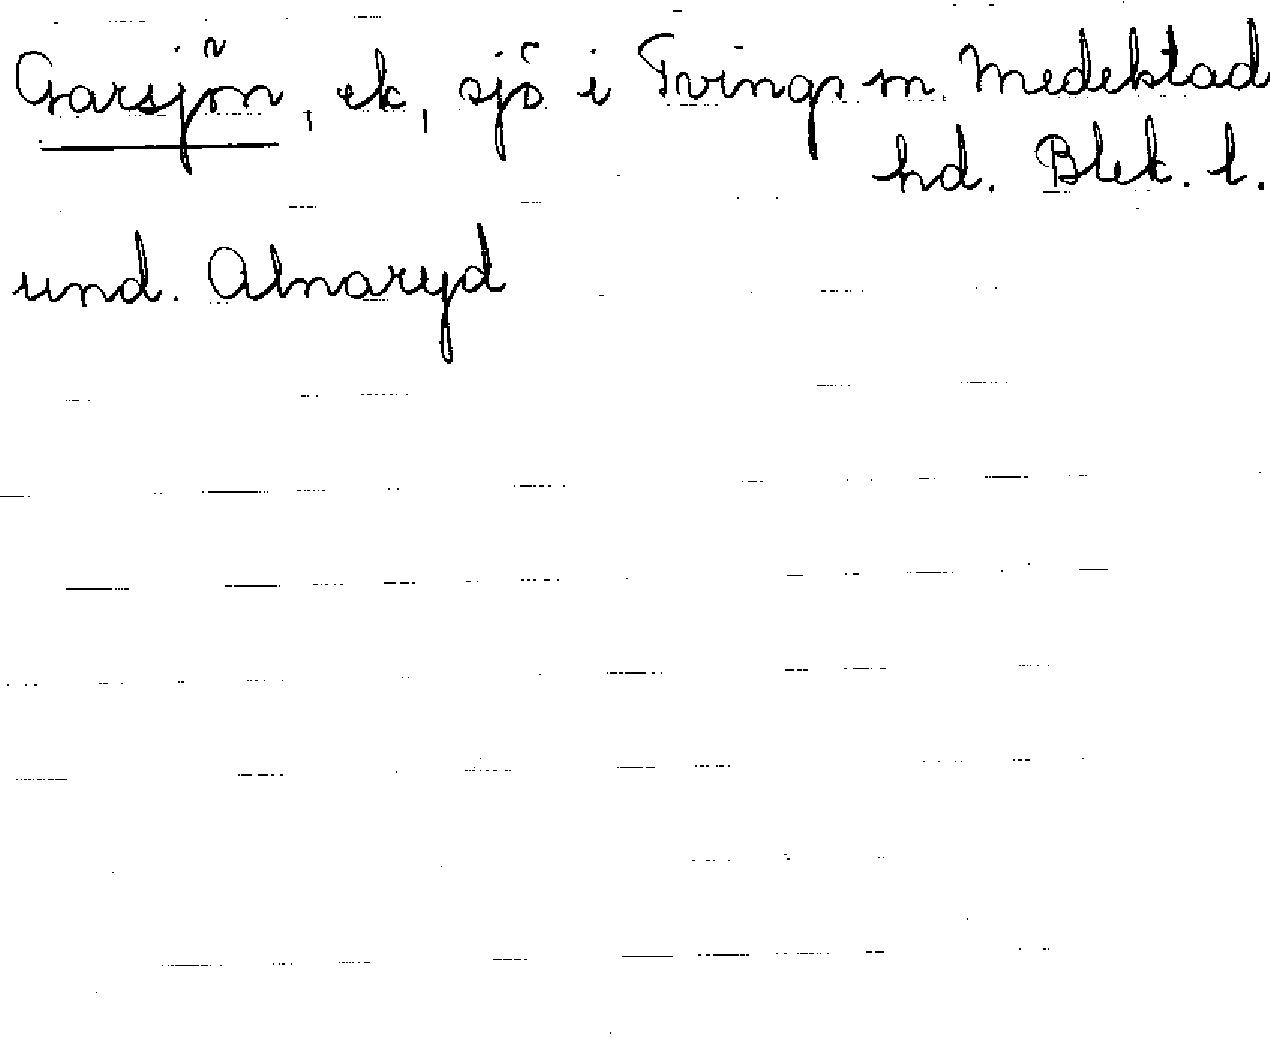 Garsjön, ek, sjö i Tvings sn. Medelstad
hd. Blek. l.
und. Alnaryd